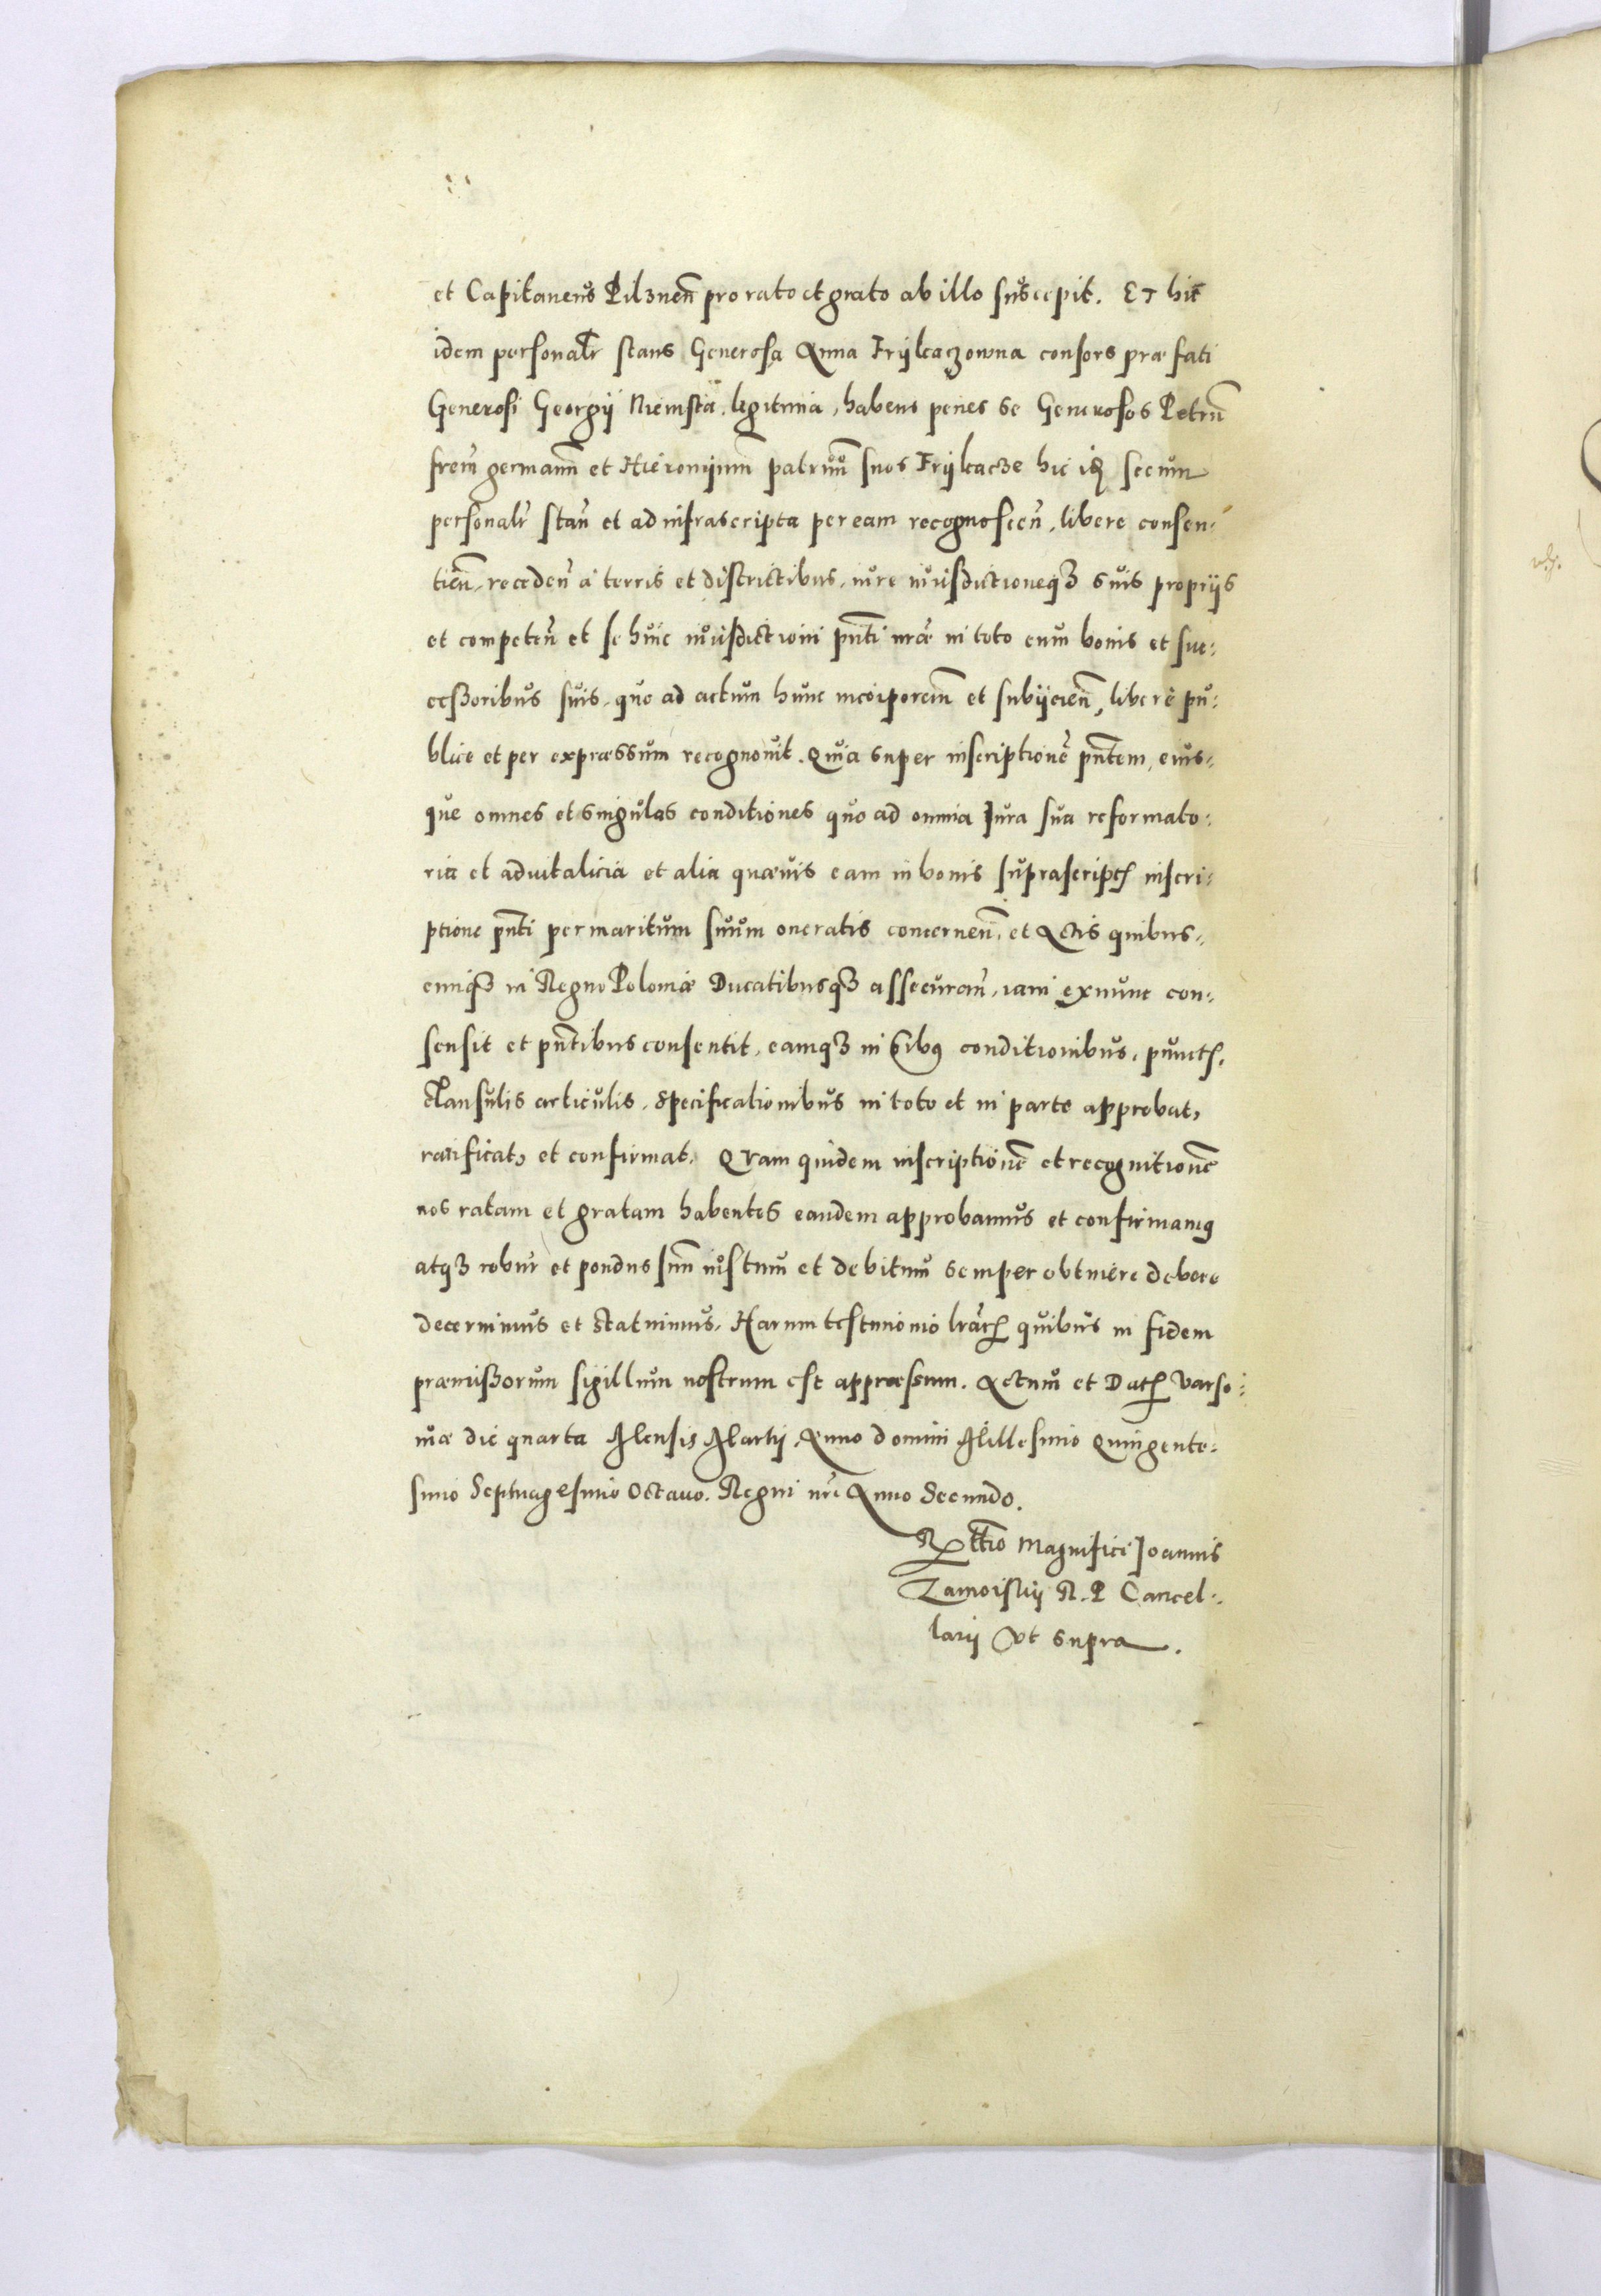 et Capitaneus Pilznen̄ pro rato et grato ab illo suscepit. Et hic
idem personalr̄ stans Generosa Anna Frykaczowna consors præfati
Generosi Georgij Niemsta, legitima, habens penes se Generosos Petrū
frēm germanū et Hieronijmum patruū suos Frijkacze hic itq̄ secum
personalr̄ stan̄ et ad infrascripta per eam recognoscen̄, libere consen-
tien̄, receden̄ a terris et districtibus, iure iurisdictioneqȝ suis proprijs
et competen̄ et se huic iurisdictioni pn̄ti nr̄æ in toto cum bonis et suc-
cessoribus suis, quo ad actum hunc incorporan̄ et subijcien̄, libere pu-
blice et per expressum recognouit. Quia super inscriptionē pn̄tem, eius-
que omnes et singulas conditiones quo ad omnia Jura sua reformato-
ria et aduitalicia et alia quæuis eam in bonis suprascriptꝭ inscri-
ptione pn̄ti per maritum suum oneratis concernen̄, et Actis quibus-
cunqȝ in Regno Poloniæ Ducatibusqȝ assecuran̄, iam exnunc con-
sensit et pn̄tibus consentit, eamqȝ in oībꝯ conditionibus, punctꝭ,
clausulis articulis, specificationibus in toto et in parte approbat,
ratificat, et confirmat. Quam quidem inscriptionē et recognitionē
nos ratam et gratam habentes eandem approbamus et confirmamꝯ
atqȝ robur et pondus suū iustum et debitum semper obtinere debere
decernimus et statuimus. Harum testimonio lr̄arꝝ quibus in fidem
præmissorum sigillum nostrum est appressum. Actum et Datꝭ Varso-
uiæ die quarta Mensis Martij, Anno domini Millesimo Quingente-
simo Septuagesimo Octauo. Regni nr̄i Anno Secundo.
Rettio Magnifici Joannis
Zamoiskij R. P Cancel-
larij Vt supra.